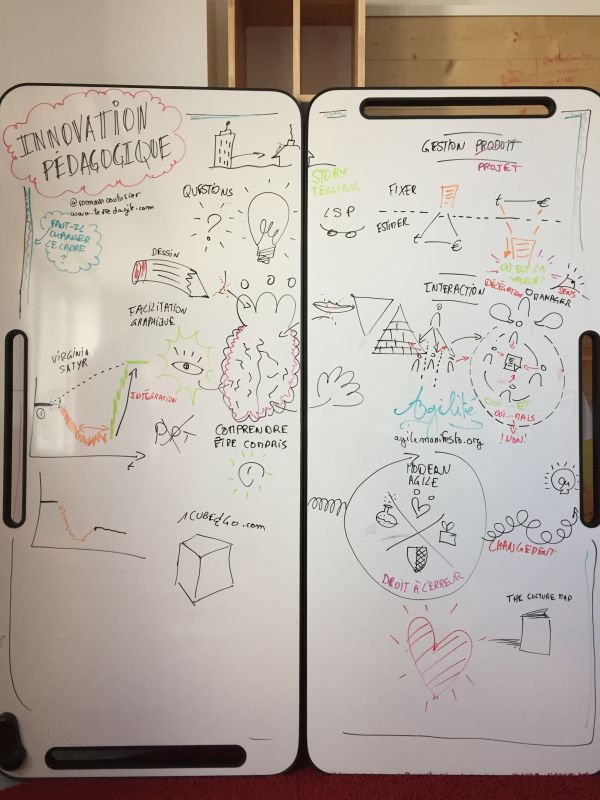 INNOVATION
PEDAGOGIQUE
www.terredagile.com
FAUT-IL
CHANGER
LE CADRE
?
QUESTIONS
?
DESSIN
FACILITATION
GRAPHIQUE
VIRGINIA
SATYR
INTÉGRATION
t
COMPRENDRE
ÊTRE COMPRIS
1CUBE2GO.com
GESTION PRODUIT
PROJET
STORY
TELLING
LSP
FIXER
ESTIMER
t
€
t
€
OU EST LA
VALEUR
INTERACTION
DÉLÉGATION
SENS
MANAGER
OUI ET
OUI...MAIS
!NON!
Agilité
agilemanifesto.org
MODERN
AGILE
DROIT À L'ERREUR
CHANGEMENT
THE CULTURE MAP